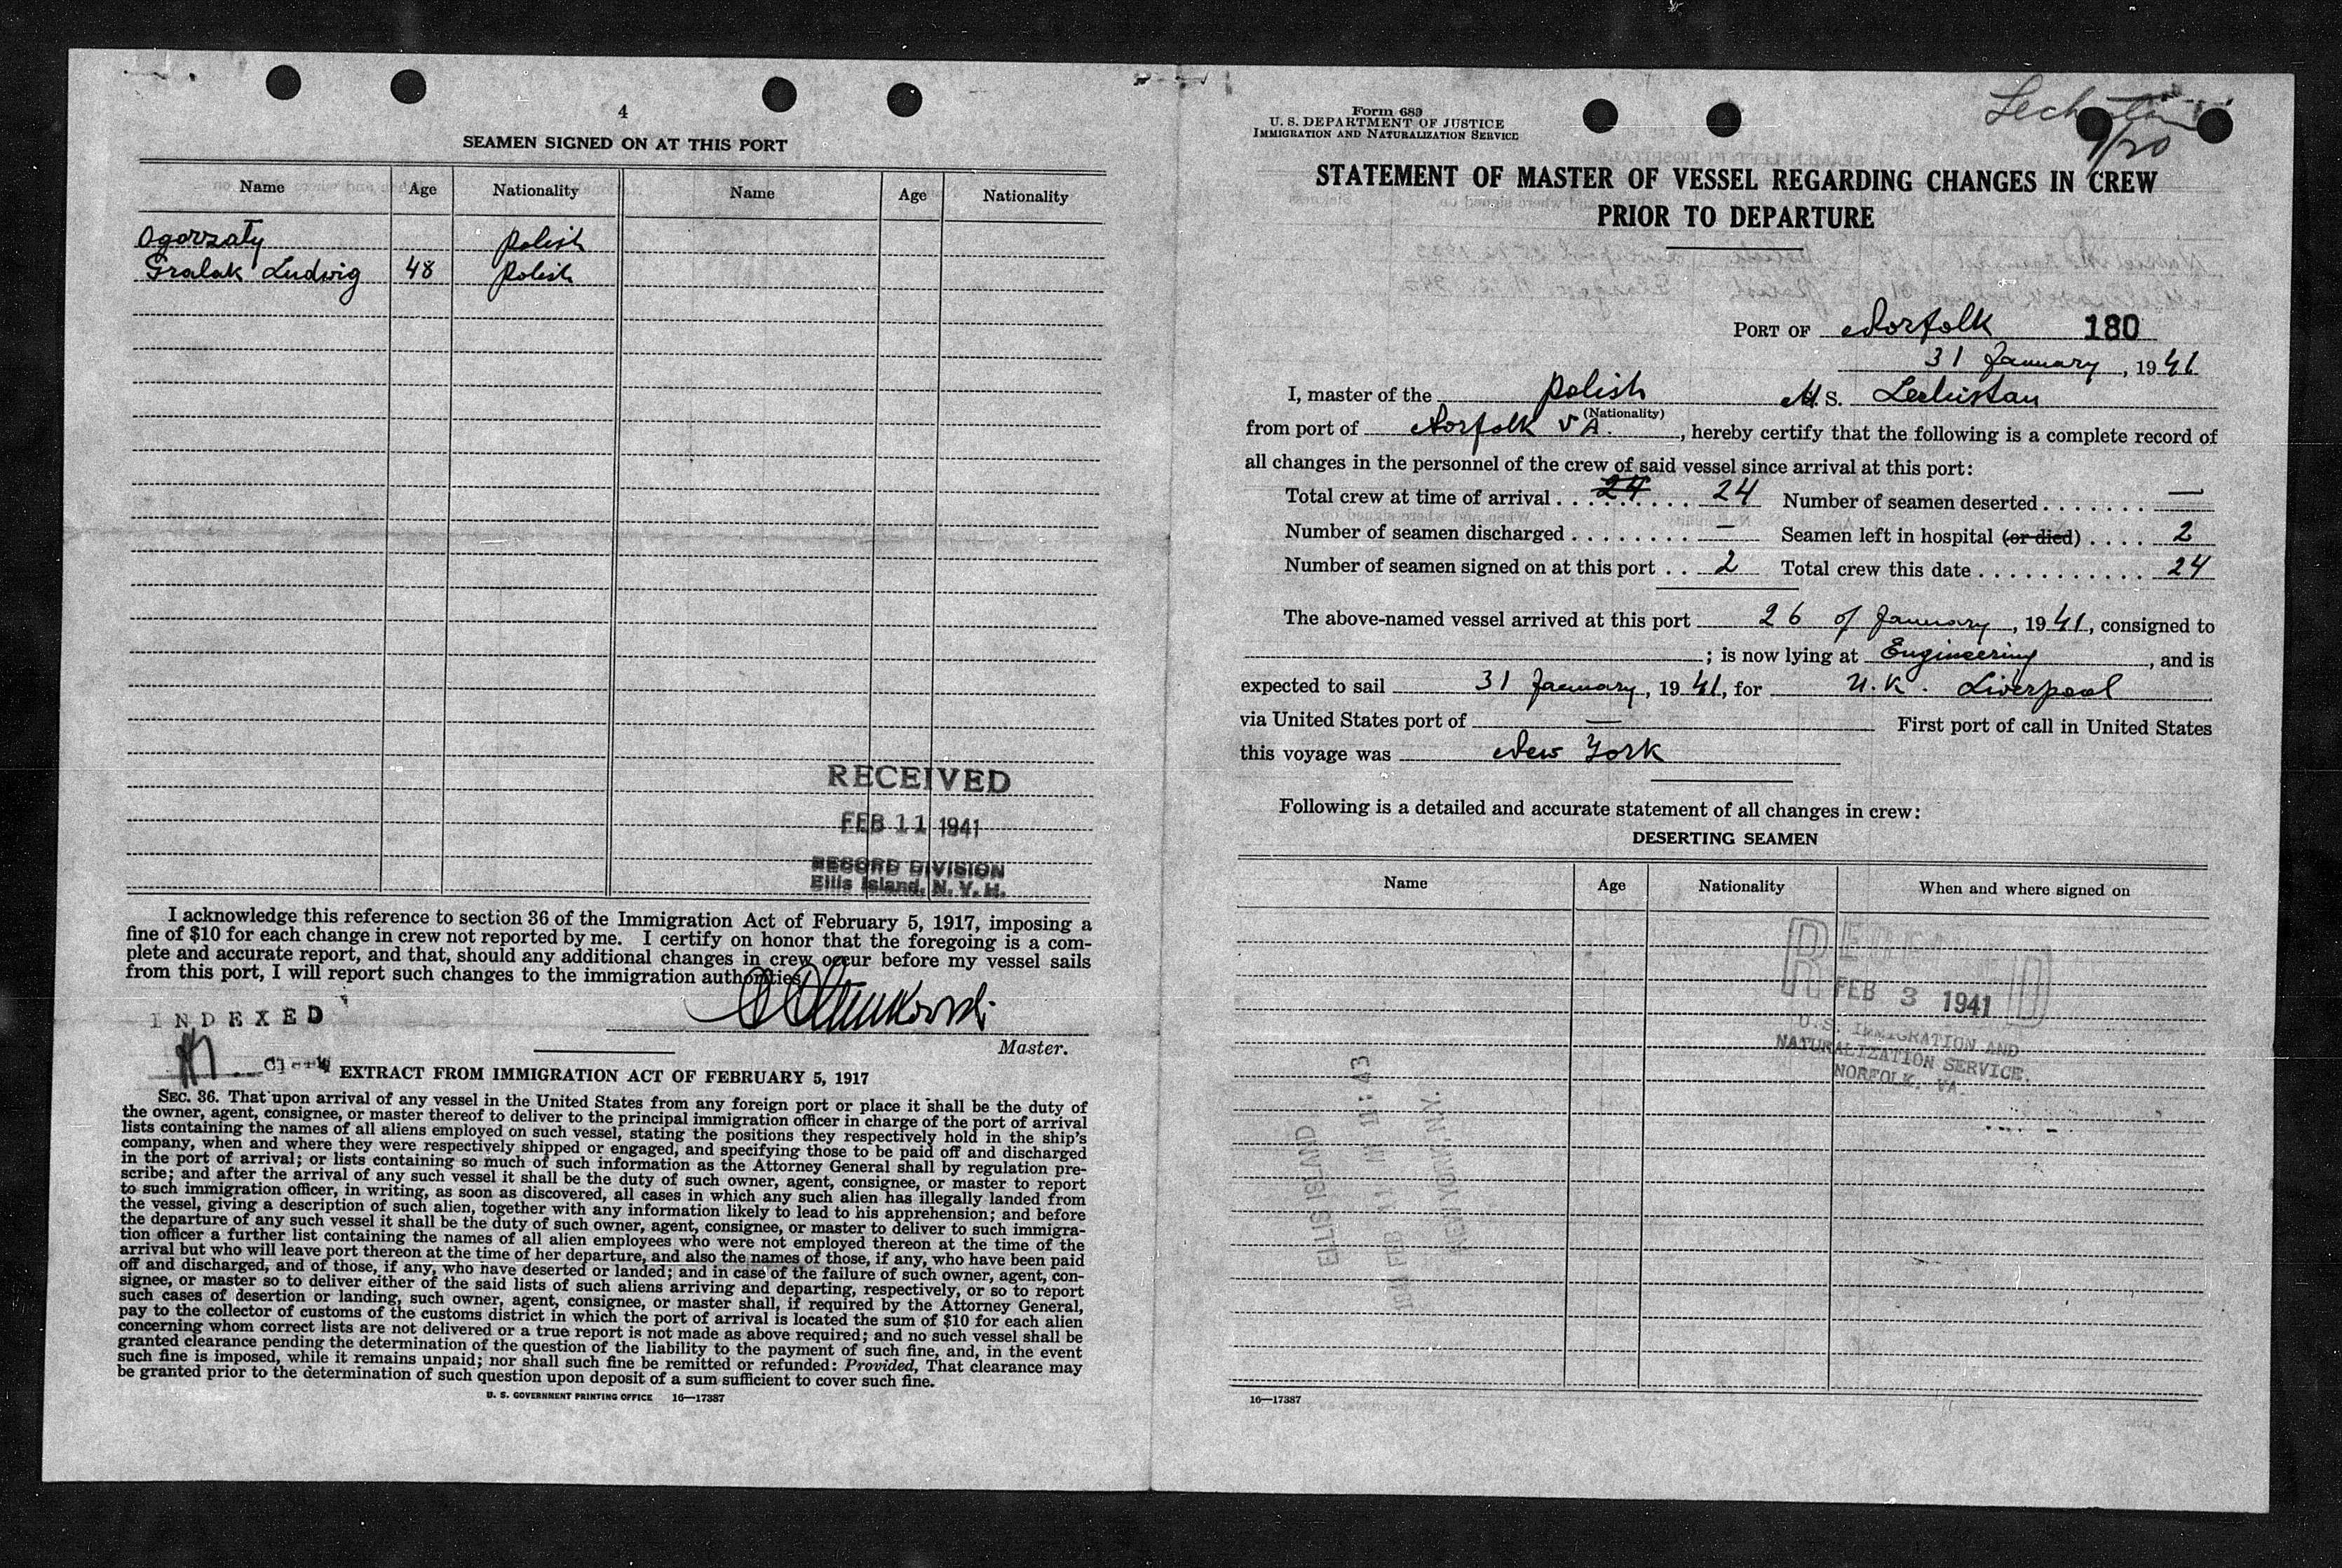 4
SEAMEN SIGNED ON AT THIS PORT
Name Age Nationality Name Age Nationality
Ogorzaty Polish
Gralak Ludwig 48 Polish
RECEIVED
FEB 11 1941
RECORD DIVISION
Ellis Island, N. Y. H.
I acknowledge this reference to section 36 of the Immigration Act of February 5, 1917, imposing a
fine of $10 for each change in crew not reported by me. I certify on honor that the foregoing is a com-
plete and accurate report, and that, should any additional changes in crew occur before my vessel sails
from this port, I will report such changes to the immigration authorities.
INDEXED
Master.
Clerk
EXTRACT FROM IMMIGRATION ACT OF FEBRUARY 5, 1917
SEC. 36. That upon arrival of any vessel in the United States from any foreign port or place it shall be the duty of
the owner, agent, consignee, or master thereof to deliver to the principal immigration officer in charge of the port of arrival
lists containing the names of all aliens employed on such vessel, stating the positions they respectively hold in the ship's
company, when and where they were respectively shipped or engaged, and specifying those to be paid off and discharged
in the port of arrival; or lists containing so much of such information as the Attorney General shall by regulation pre-
scribe; and after the arrival of any such vessel it shall be the duty of such owner, agent, consignee, or master to report
to such immigration officer, in writing, as soon as discovered, all cases in which any such alien has illegally landed from
the vessel, giving a description of such alien, together with any information likely to lead to his apprehension; and before
the departure of any such vessel it shall be the duty of such owner, agent, consignee, or master to deliver to such immigra-
tion officer a further list containing the names of all alien employees who were not employed thereon at the time of the
arrival but who will leave port thereon at the time of her departure, and also the names of those, if any, who have been paid
off and discharged, and of those, if any, who have deserted or landed; and in case of the failure of such owner, agent, con-
signee, or master so to deliver either of the said lists of such aliens arriving and departing, respectively, or so to report
such cases of desertion or landing, such owner, agent, consignee, or master shall, if required by the Attorney General,
pay to the collector of customs of the customs district in which the port of arrival is located the sum of $10 for each alien
concerning whom correct lists are not delivered or a true report is not made as above required; and no such vessel shall be
granted clearance pending the determination of the question of the liability to the payment of such fine, and, in the event
such fine is imposed, while it remains unpaid; nor shall such fine be remitted or refunded: Provided, That clearance may
be granted prior to the determination of such question upon deposit of a sum sufficient to cover such fine.
U. S. GOVERNMENT PRINTING OFFICE 16—17387
Form 689
U. S. DEPARTMENT OF JUSTICE
IMMIGRATION AND NATURALIZATION SERVICE
Lechistan
9/20
STATEMENT OF MASTER OF VESSEL REGARDING CHANGES IN CREW
PRIOR TO DEPARTURE
PORT OF Norfolk 180
31 January, 1941
I, master of the Polish M. S. Lechistan
(Nationality)
from port of Norfolk VA., hereby certify that the following is a complete record of
all changes in the personnel of the crew of said vessel since arrival at this port:
Total crew at time of arrival . . . 24 . . . 24 Number of seamen deserted . . . . . . . —
Number of seamen discharged . . . . . . . . — Seamen left in hospital (or died) . . . . 2
Number of seamen signed on at this port . . 2 Total crew this date . . . . . . . . . . . 24
The above-named vessel arrived at this port 26 of January, 1941, consigned to
; is now lying at Engineering, and is
expected to sail 31 January, 1941, for U.K. Liverpool
via United States port of — First port of call in United States
this voyage was New York
Following is a detailed and accurate statement of all changes in crew:
DESERTING SEAMEN
Name Age Nationality When and where signed on
FEB 3 1941
U.S. IMMIGRATION AND
NATURALIZATION SERVICE.
NORFOLK, VA.
ELLIS ISLAND
NEW YORK, N.Y.
16—17387